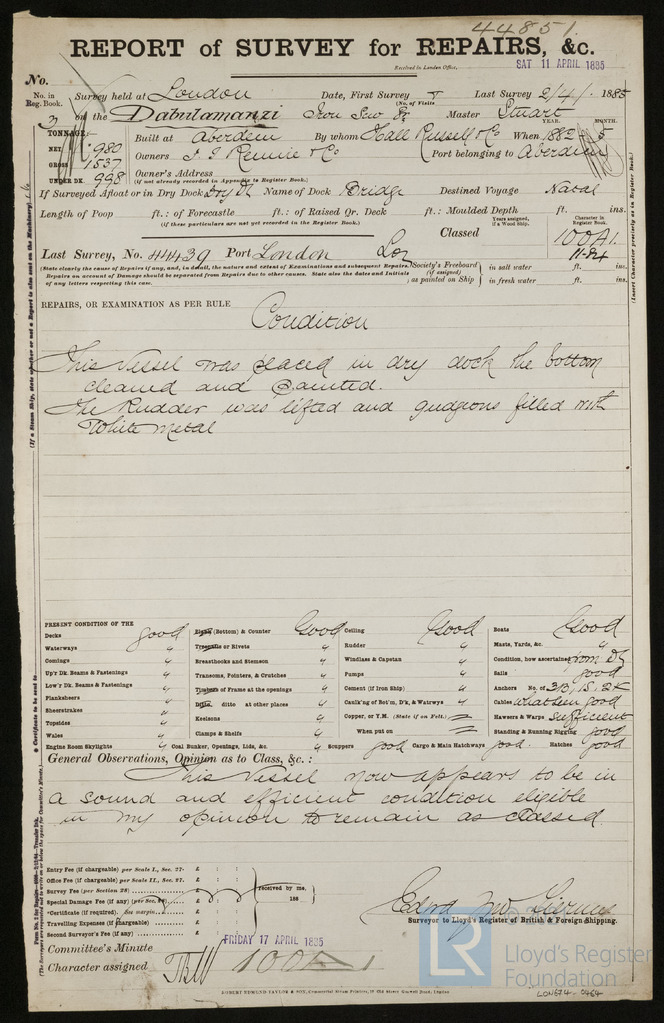 44851.
REPORT of SURVEY for REPAIRS, &c.
Received in London Office, SAT 11 APRIL 1885
No.
No. in Reg. Book. Survey held at London Date, First Survey Last Survey 2/4/ 1885
(No. of Visits
3 on the Dabulamanzi Iron Scw Master Stuart
TONNAGE YEAR. MONTH.
NET 980 Built at Aberdeen By whom Hall Russell & Co When 1882 5
GROSS 1537 Owners J. T. Rennie & Co Port belonging to Aberdeen
UNDER DK. 998 Owner's Address
(If not already recorded in Appendix to Register Book.)
If Surveyed Afloat or in Dry Dock Dry Dk Name of Dock Bridge Destined Voyage Natal
Length of Poop ft.: of Forecastle ft.: of Raised Qr. Deck ft.: Moulded Depth ft. ins.
(If these particulars are not yet recorded in the Register Book.)
Years assigned, if a Wood Ship. Character in Register Book.
Classed 100A1.
11-84
Last Survey, No. 44439 Port London Lon
Society's Freeboard (if assigned) as painted on Ship in salt water ft. ins.
in fresh water ft. ins.
(State clearly the cause of Repairs if any, and, in detail, the nature and extent of Examinations and subsequent Repairs.
Repairs on account of Damage should be separated from Repairs due to other causes. State also the dates and Initials
of any letters respecting this case.)
REPAIRS, OR EXAMINATION AS PER RULE
Condition
This Vessel was placed in dry dock the bottom
cleaned and painted.
The Rudder was lifted and gudgeons filled with
White metal
PRESENT CONDITION OF THE
Decks good (Bottom) & Counter Good Ceiling Good Boats Good
Waterways " Treenails or Rivets " Rudder " Masts, Yards, &c. "
Comings " Breasthooks and Stemson " Windlass & Capstan " Condition, how ascertained from Dk
Up'r Dk. Beams & Fastenings " Transoms, Pointers, & Crutches " Pumps " Sails good
Low'r Dk. Beams & Fastenings " Timbers of Frame at the openings " Cement (if Iron Ship) " Anchors No. of 3B, 1S, 2K
Planksheers " Ditto, ditto at other places " Caulk'ng of Bot'm, D'k, & Watrwys " Cables what seen good
Sheerstrakes " Keelsons " Copper, or Y.M. (State if on Felt.) Hawsers & Warps sufficient
Topsides " Clamps & Shelfs " When put on Standing & Running Rigging good
Wales "
Engine Room Skylights " Coal Bunker, Openings, Lids, &c. " Scuppers good Cargo & Main Hatchways good. Hatches good
General Observations, Opinion as to Class, &c. :
This Vessel now appears to be in
a sound and efficient condition eligible
in my opinion to remain as classed.
Entry Fee (if chargeable) per Scale I., Sec. 27. £ : :
Office Fee (if chargeable) per Scale II., Sec. 27. £ : :
Survey Fee (per Section 28) £ : : received by me,
Special Damage Fee (if any) (per Sec. £ : : 188
*Certificate (if required). See margin. £ : :
Travelling Expenses (if chargeable) £ : :
Second Surveyor's Fee (if any) £ : :
Surveyor to Lloyd's Register of British & Foreign Shipping.
Committee's Minute FRIDAY 17 APRIL 1885
Character assigned 100A1
ROBERT EDMUND TAYLOR & SON,
LR Lloyd's Register
Foundation
LON674-0464